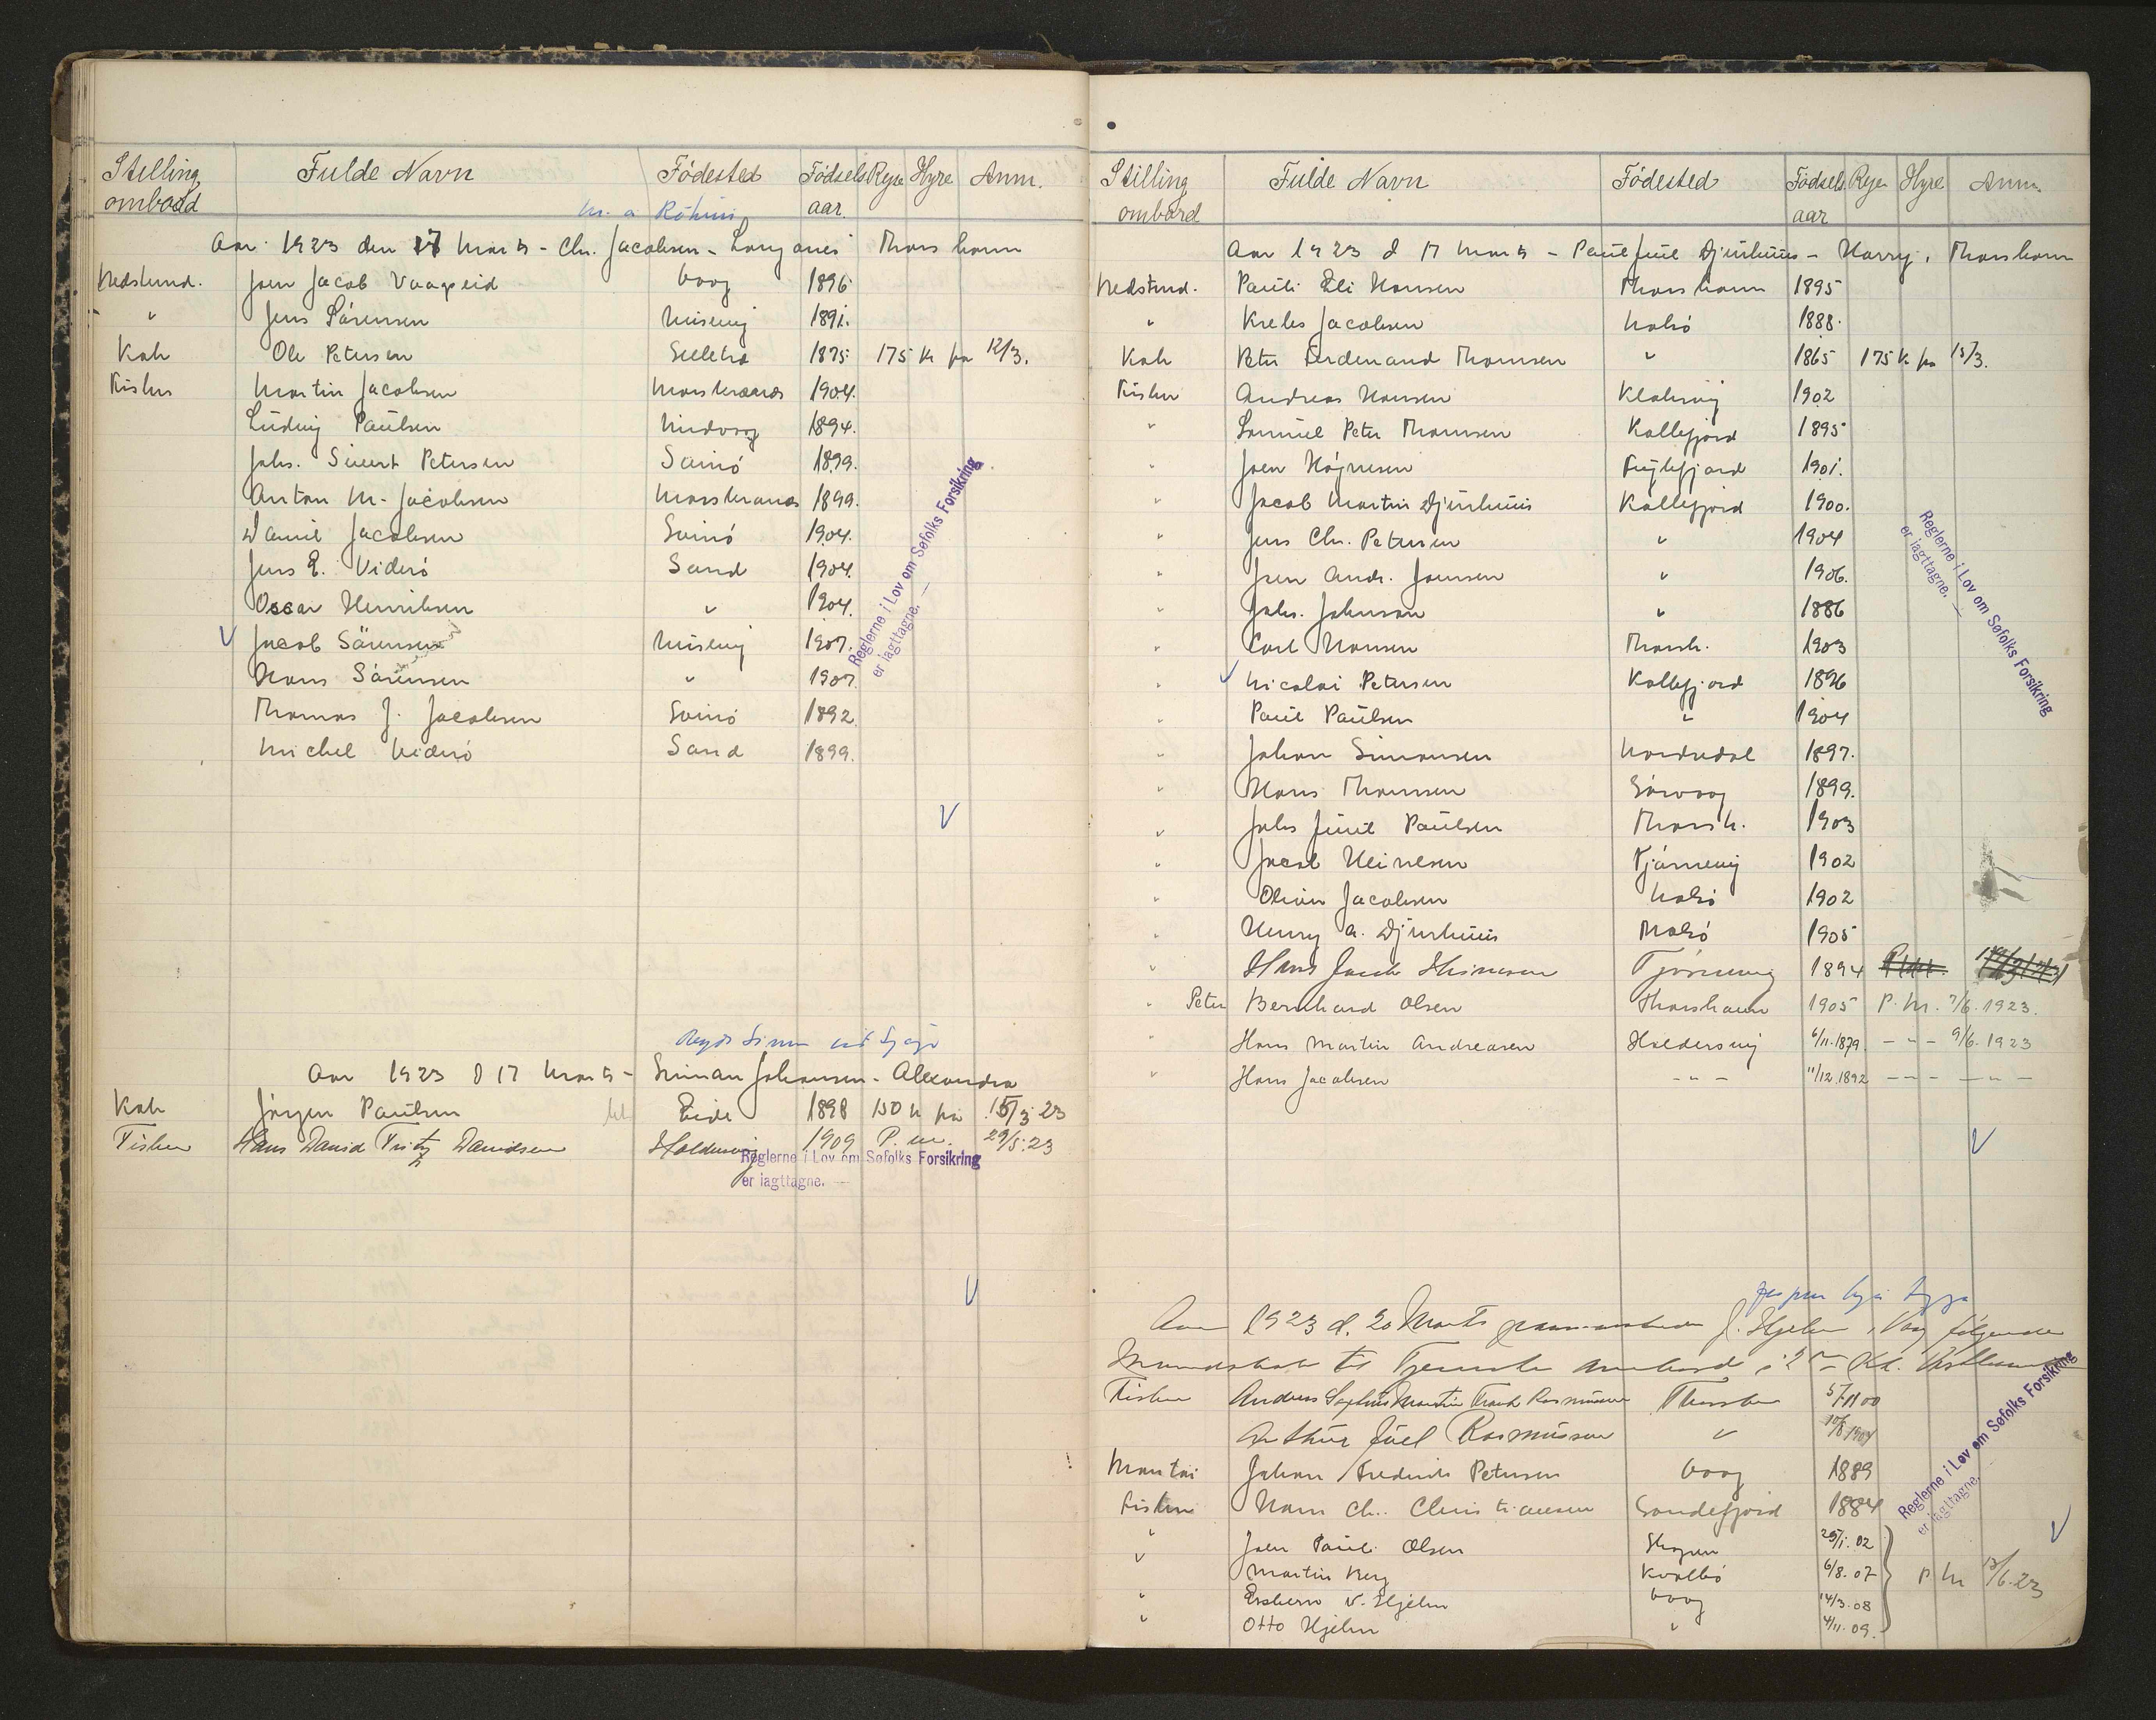 Stilling Fulde Navn Födested Födsels Reje Hyre Anm.
ombord aar.
Aar 1923 den 17 Marts - Chr. Jacobsen - Langanes Thorshavn
Bedstmd. Joen Jacob Vaag 1896
" Jens Sörensen 1891.
Kok Ole Petersen Selletræ 1875 175 Kr fra 12/3.
Fisker Martin Jacobsen 1904.
Ludvig Paulsen 1894.
Johs. Sivert Petersen Svinö 1899.
Anton M. Jacobsen 1899.
Daniel Jacobsen Svinö 1904.
Jens E. Viderö Sand 1904.
Oscar Henriksen " 1904.
Jacob Sörensen 1907.
Hans Sörensen " 1907
Thomas J. Jacobsen Svinö 1892
Michel Viderö Sand 1899.
Reglerne i Lov om Søfolks Forsikring
er iagttagne. —
Aar 1923 d 17 Marts - Simon Johansen - Alexandra
Kok Jörgen Paulsen Eide 1898 150 Kr fra 15/3 23
Fisker Hans David Fritz Davidsen Haldersvig 1909 P. M. 29/5.23
Reglerne i Lov om Søfolks Forsikring
er iagttagne. —
Stilling Fulde Navn Födested Födsels Reje Hyre Anm.
ombord aar
Aar 1923 d 17 Marts - Paul Juul Djurhuus - Harry, Thorshavn
Bedstmd. Pauli Eli Hansen Thorshavn 1895
" Krebs Jacobsen Nolsö 1888.
Kok Peter Ferdenand Thomsen " 1865 175 K fra 15/3.
Fisker Andreas Hansen Klaksvig 1902
" Samuel Peter Thomsen Kollefjord 1895
" Joen Högnesen Fuglefjord 1901.
" Jacob Martin Djurhuus Kollefjord 1900.
" Jens Chr. Petersen " 1904
" Joen Andr. Joensen " 1906.
" Johs. Johnson " 1886
" Carl Hansen Thorsh. 1903
" Nicolai Petersen Kollefjord 1896
" Paul Paulsen " 1904
" Johan Simonsen Nordredal 1897.
" Hans Thomsen Sörvaag 1899.
" Johs Juul Paulsen Thorsh. 1903
" Jacob Heinesen Tjörnevig 1902
" Olivur Jacobsen Nolsö 1902
" Henry A. Djurhuus Nolsö 1905
" Hans Jacob Tjörnevig 1894
" Peter Bernhard Olsen Thorshavn 1905 P. M. 7/6. 1923.
" Hans Martin Andreasen Haldersvig 6/11.1879. - " - 9/6. 1923
" Hans Jacobsen - " - 11/12.1892 - - - - " -
Reglerne i Lov om Søfolks Forsikring
er iagttagne. —
Aar 1923 d. 20 Marts J. Hjelm, Vaag følgende
Mandskab til Tjeneste ombord i
Fisker Andreas Martin Rasmussen 5/11 00
Arthur Juel Rasmussen " 10/8 1904
Johan Frederik Petersen Vaag 1889
Fisker Hans Chr. Christiansen Sandefjord 1884
" Joen Pauli Olsen Skopen 29/1. 02
" Martin Berg Kvalbö 6/8. 07 P M 13/6.23
" Esbern V. Hjelm Vaag 14/3.08
" Otto Hjelm " 4/11. 09.
Reglerne i Lov om Søfolks Forsikring
er iagttagne. —